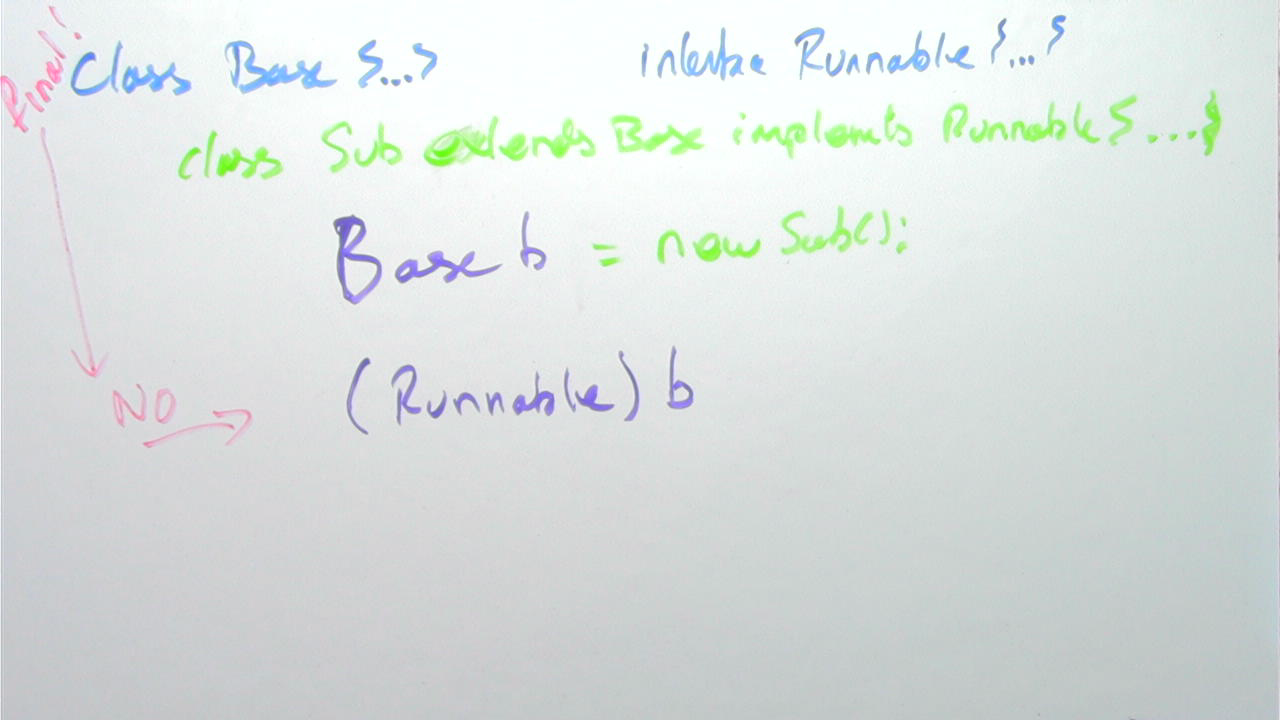 final!
Class Base {...}
interface Runnable {...}
class Sub extends Base implements Runnable {...}
Base b = new Sub();
NO
(Runnable) b